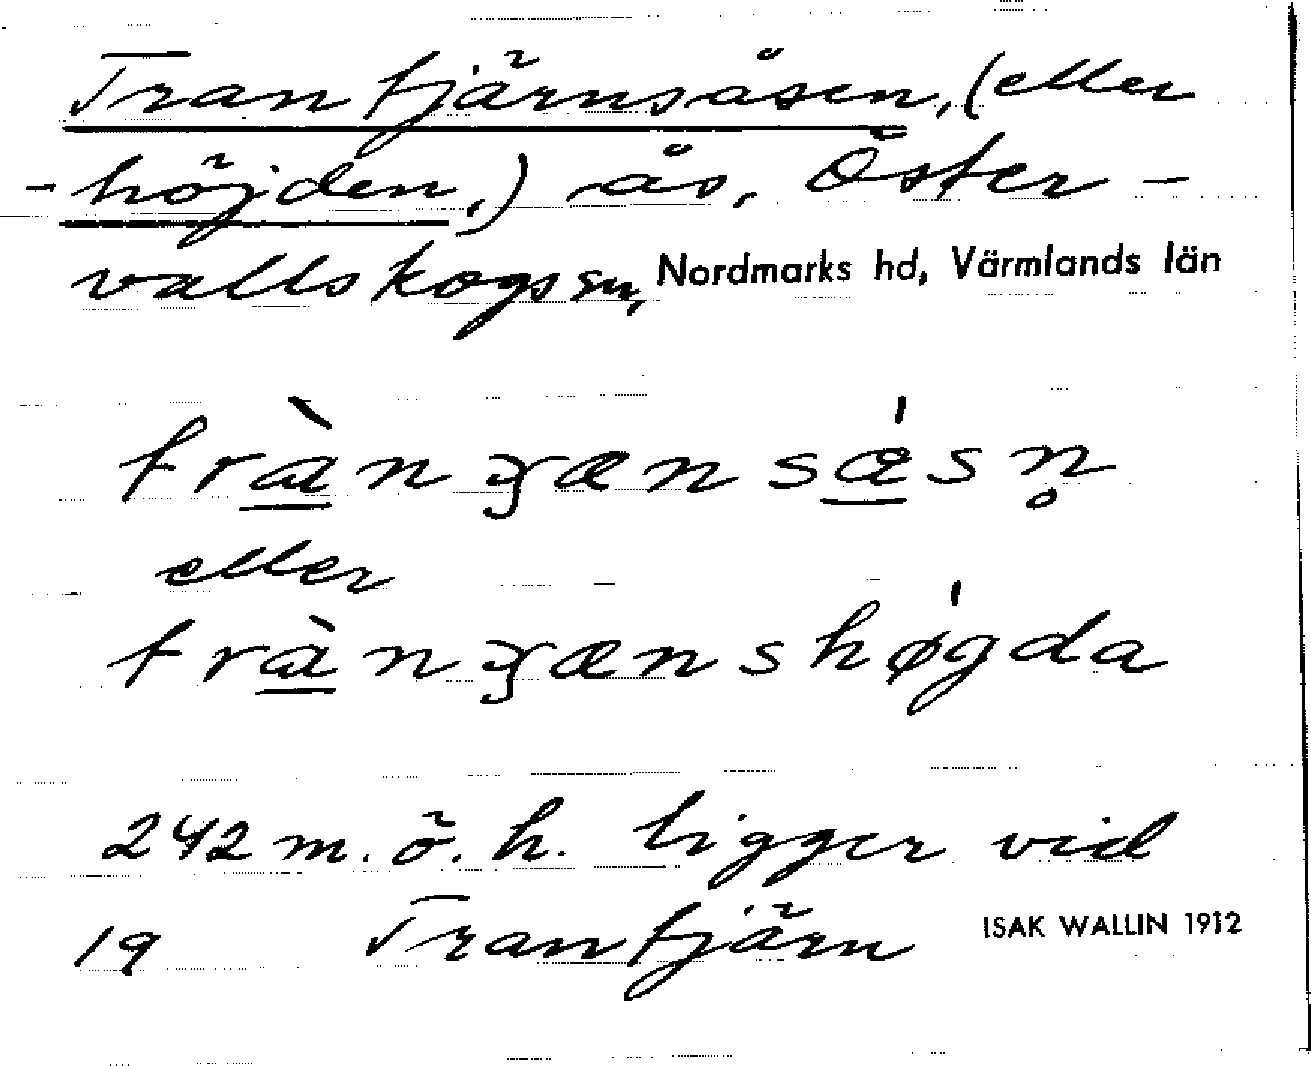 Trantjärnsåsen, (eller
-höjden,) ås, Öster-
vallskogs sn, Nordmarks hd, Värmlands län
eller
242 m. ö. h. ligger vid
19 Trantjärn ISAK WALLIN 1912